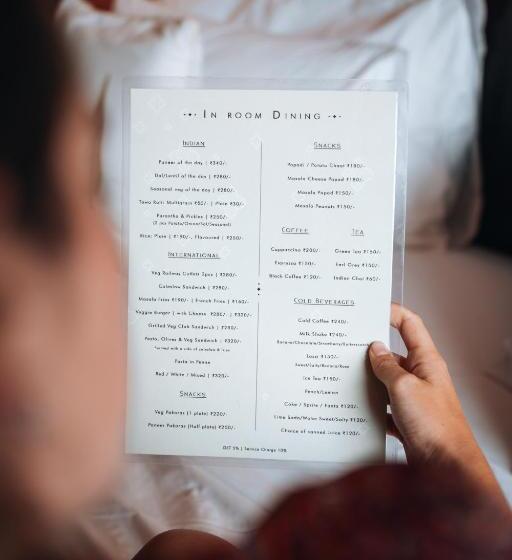 IN ROOM DINING
INDIAN
Paneer of the day | ₹340/-
Dal/Lentil of the day | ₹280/-
Seasonal veg of the day | ₹280/-
Tawa Roti Multigrain ₹60/- | Plain ₹30/-
Parantha & Pickles | ₹250/-
(2 pcs Potato/Onion/Sat/Seasonal)
Rice: Plain | ₹190/-, Flavoured | ₹250/-
INTERNATIONAL
Veg Railway Cutlets 2pcs | ₹280/-
Coleslaw Sandwich | ₹280/-
Masala Fries ₹190/- | French Fries | ₹160/-
Veggie Burger | with Cheese ₹280/- | ₹320/-
Grilled Veg Club Sandwich | ₹290/-
Pesto, Olives & Veg Sandwich | ₹320/-
Served with a side of
Pasta in Penne
Red / White / Mixed | ₹320/-
SNACKS
Veg Pakoras (1 plate) ₹220/-
Paneer Pakoras (Half plate) ₹250/-
SNACKS
Papadi / Potato Chaat ₹180/-
Masala Cheese Papad ₹180/-
Masala Papad ₹150/-
Masala Peanuts ₹150/-
COFFEE
Cappuccino ₹200/-
Espresso ₹150/-
Black Coffee ₹120/-
TEA
Green Tea ₹150/-
Earl Grey ₹150/-
Indian Chai ₹60/-
COLD BEVERAGES
Cold Coffee ₹240/-
Milk Shake ₹240/-
Banana/Chocolate/Strawberry/Butterscotch
Lassi ₹150/-
Sweet/Salty/Banana/Rose
Ice Tea ₹190/-
Peach/Lemon
Coke / Sprite / Fanta ₹120/-
Lime Soda/Water Sweet/Salty ₹120/-
Choice of canned juice ₹120/-
GST 5% | Service Charge 10%